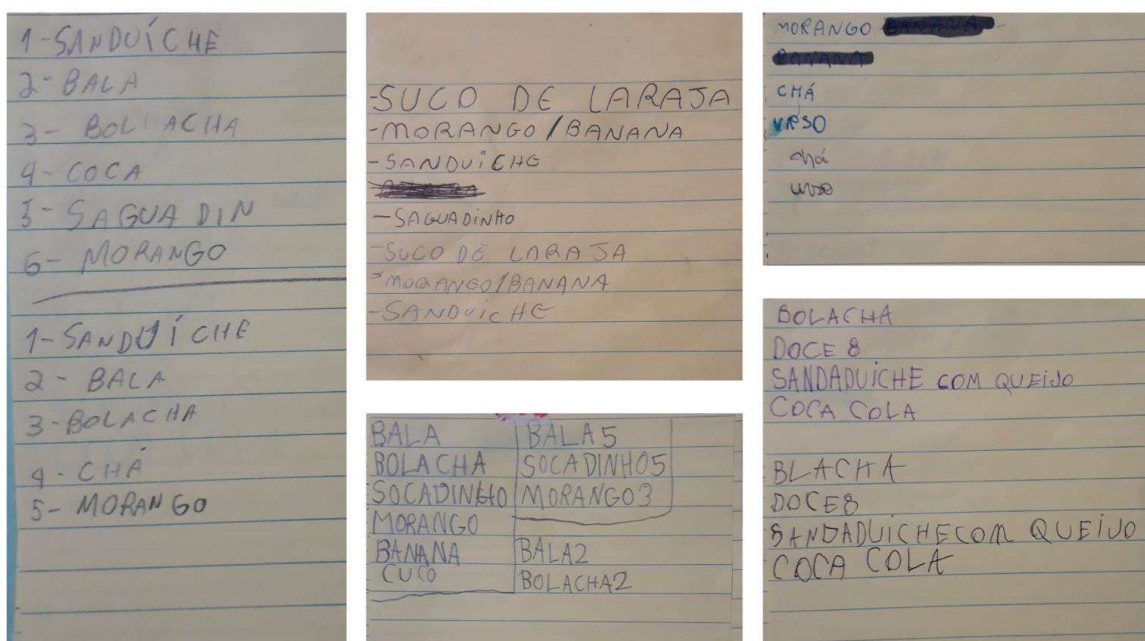 1-SANDUÍCHE
2-BALA
3- BOLACHA
4-COCA
5-SAGUADIN
6- MORANGO
1-SANDUÍCHE
2-BALA
3-BOLACHA
4-CHÁ
5-MORANGO
-SUCO DE LARAJA
-MORANGO/BANANA
-SANDUÍCHE
-SAGUADINHO
-SUCO DE LARAJA
-MORANGO/BANANA
-SANDUÍCHE
BALA
BOLACHA
SOCADINHO
MORANGO
BANANA
CUCO
BALA5
SOCADINHO5
MORANGO3
BALA2
BOLACHA2
MORANGO BANANA
BANANA
CHÁ
URSO
chá
BOLACHA
DOCE 8
SANDADUICHE COM QUEIJO
COCA COLA
BLACHA
DOCE8
SANDADUICHECOM QUEIJO
COCA COLA